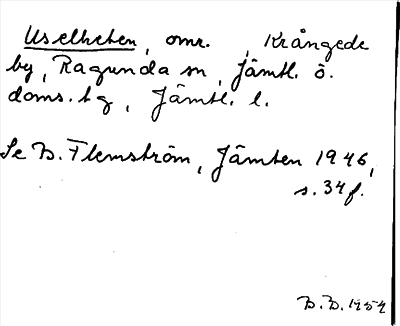 Uselheten, omr., Krångede
by, Ragunda sn, Jämtl. ö.
doms. hg, Jämtl. l.
Se B. Flemström, Jämten 1946,
s. 34 f.
B. B. 1954